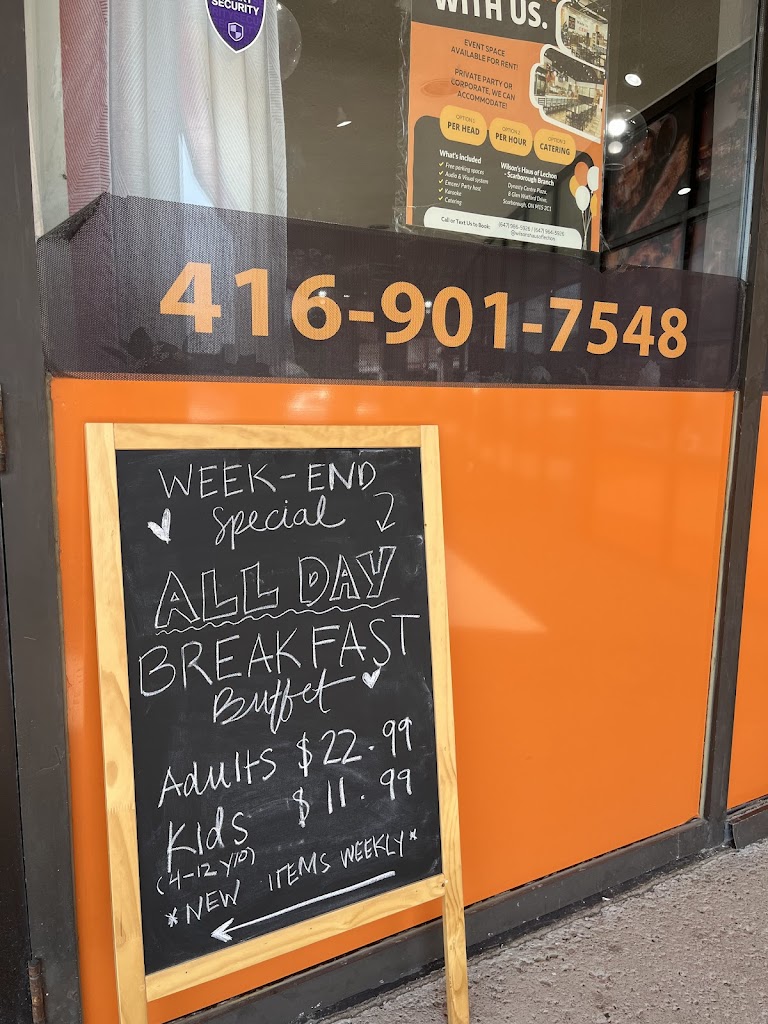 SECURITY
WITH US.
EVENT SPACE
AVAILABLE FOR RENT!
PRIVATE PARTY OR
CORPORATE, WE CAN
ACCOMMODATE!
OPTION 1
PER HEAD
OPTION 2
PER HOUR
OPTION 3
CATERING
What's Included
✓ Free parking spaces
✓ Audio & Visual system
✓ Emcee/ Party host
✓ Karaoke
✓ Catering
Wilson's Haus of Lechon
- Scarborough Branch
Dynasty Centre Plaza,
8 Glen Watford Drive,
Scarborough, ON M1S 2C1
Call or Text Us to Book:
416-901-7548
WEEK-END
Special
ALL DAY
BREAKFAST
Buffet
Adults $22.99
Kids $11.99
(4-12 y/o)
*NEW ITEMS WEEKLY*